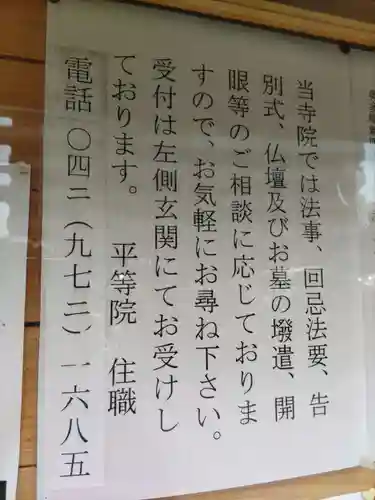 当寺院では法事、回忌法要、告
別式、仏壇及びお墓の撥遣、開
眼等のご相談に応じておりま
すので、お気軽にお尋ね下さい。
受付は左側玄関にてお受けし
ております。　平等院　住職
電話 〇四二（九七二）一六八五